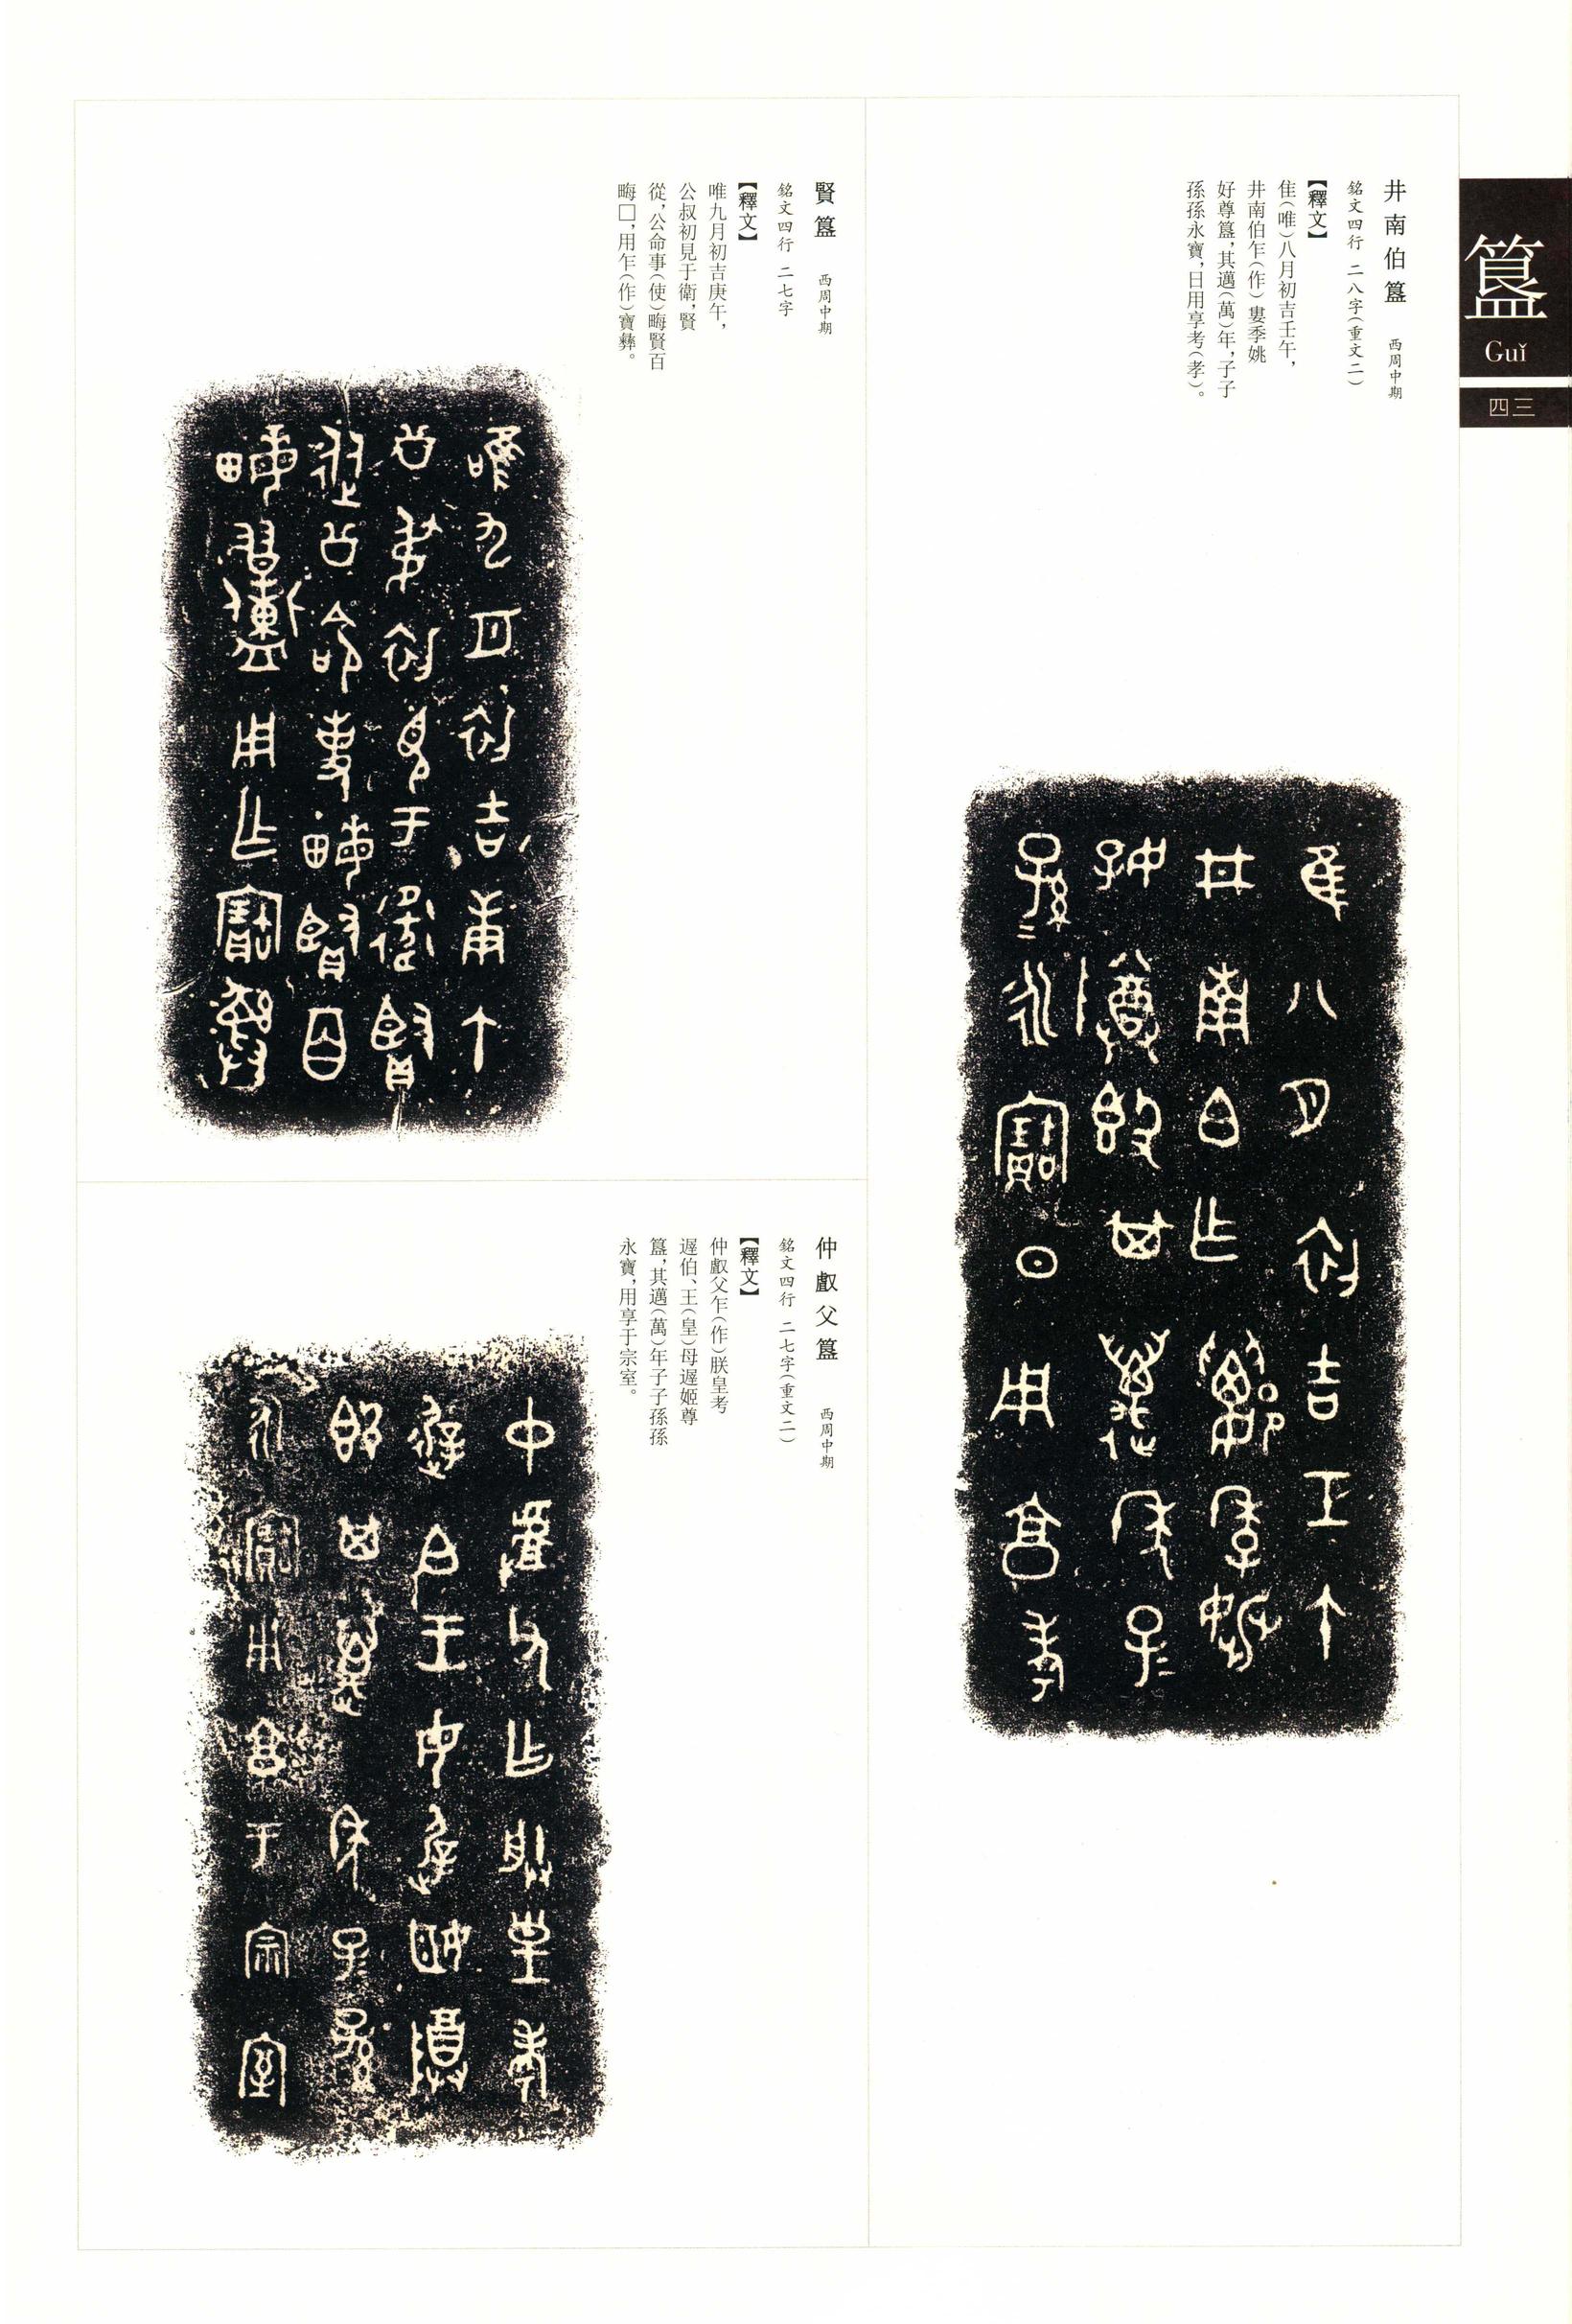 簋
Guǐ
四三
井南伯簋 西周中期
銘文四行 二八字(重文二)
【釋文】
隹(唯)八月初吉壬午,
井南伯乍(作)䣙季姚
好尊簋,其邁(萬)年,子子
孫孫永寶,日用享考(孝)。
賢簋 西周中期
銘文四行 二七字
【釋文】
唯九月初吉庚午,
公叔初見于衛,賢
從,公命事(使)畮賢百
畮□,用乍(作)寶彝。
仲㪤父簋 西周中期
銘文四行 二七字(重文二)
【釋文】
仲㪤父乍(作)朕皇考
遟伯、王(皇)母遟姬尊
簋,其邁(萬)年子子孫孫
永寶,用享于宗室。